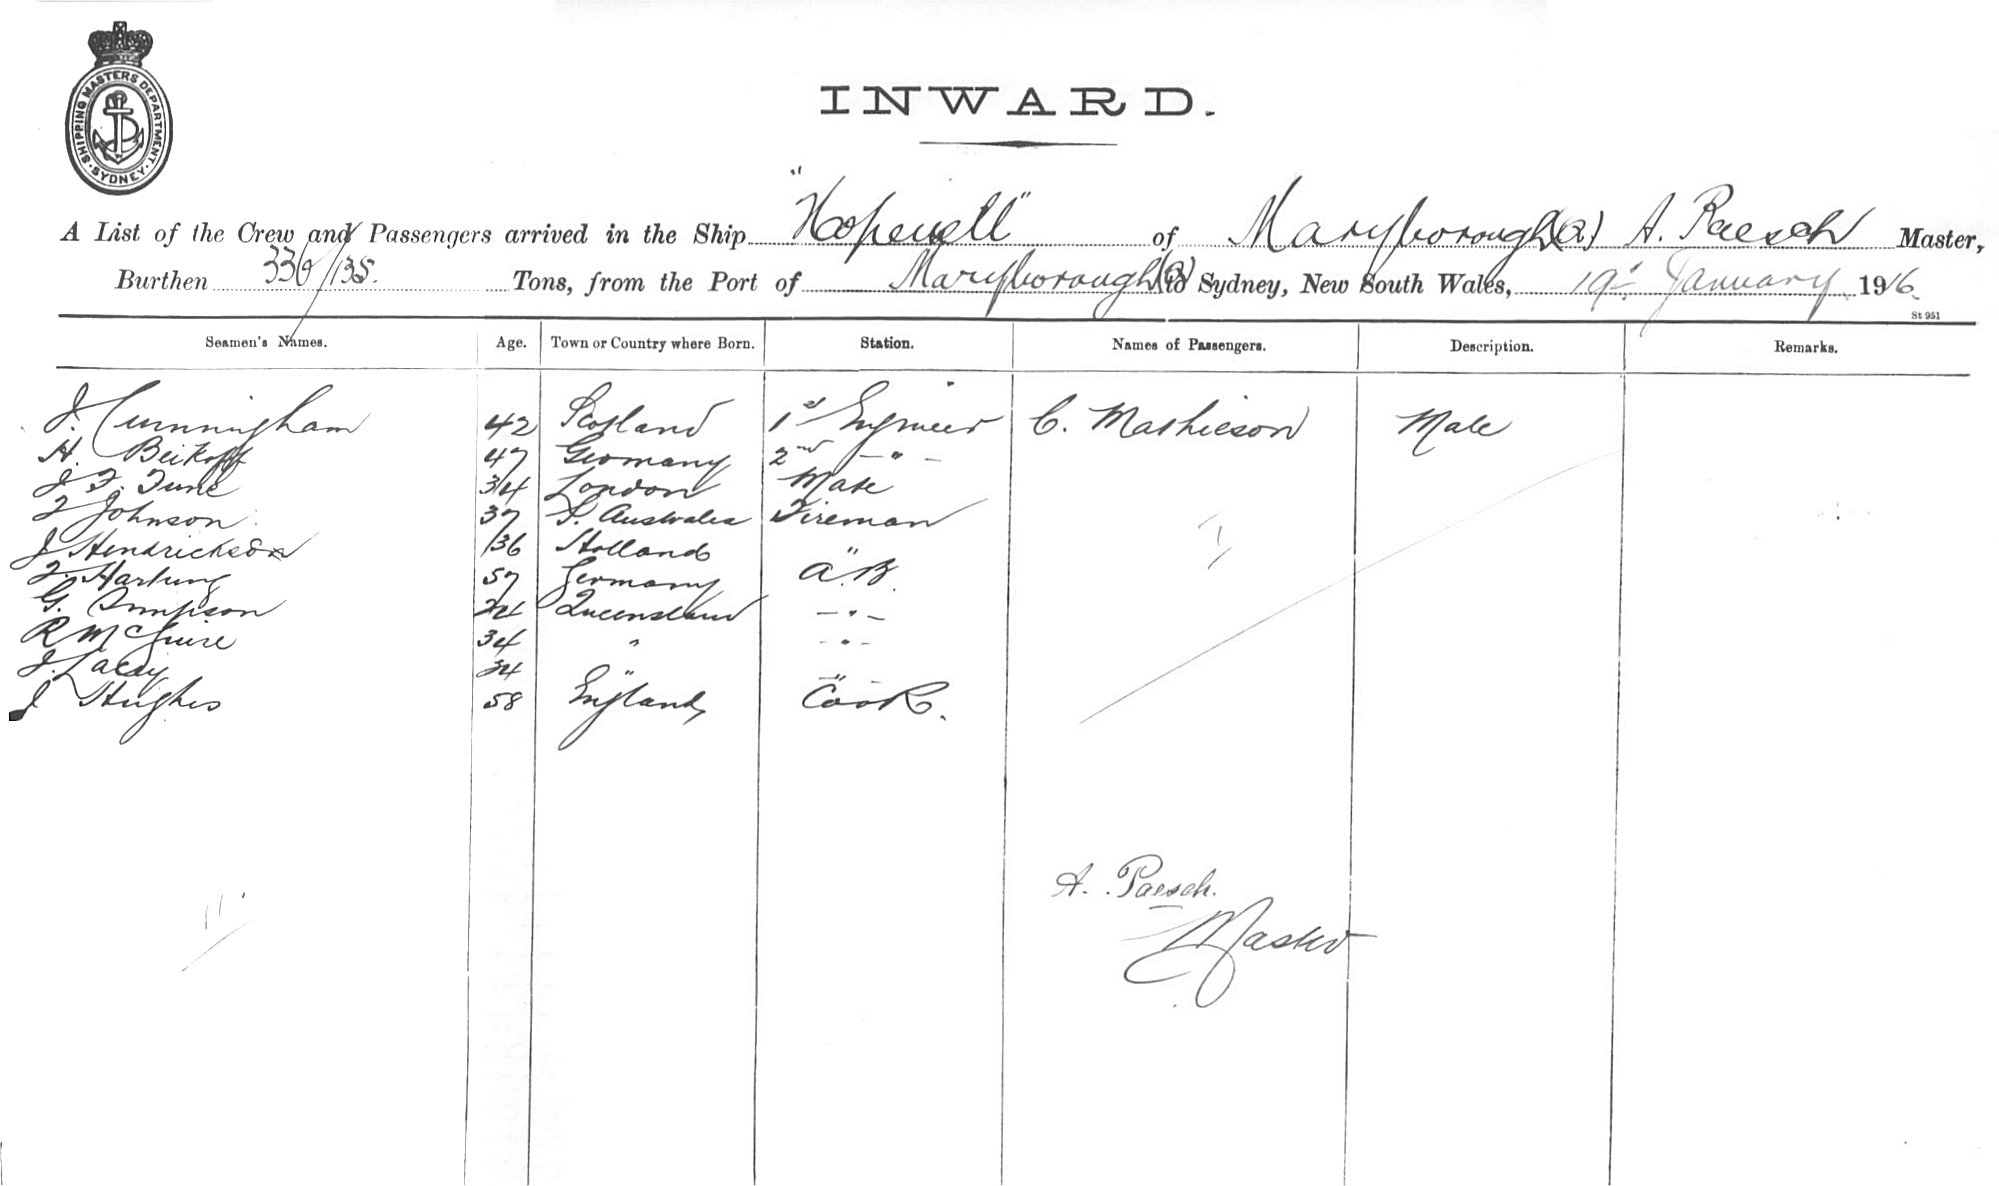 SHIPPING MASTERS DEPARTMENT · SYDNEY ·
INWARD.
A List of the Crew and Passengers arrived in the Ship "Hopewell" of Maryborough (Q) A. Paesch Master,
Burthen 336/135. Tons, from the Port of Maryborough (Q) to Sydney, New South Wales, 19th January 1916.
St 951
Seamen's Names. Age. Town or Country where Born. Station. Names of Passengers. Description. Remarks.
J. Cunningham 42 Scotland 1st Engineer C. Mathieson Male
H. Beikoff 47 Germany 2nd - " -
J. F. Tune 34 London Mate
J Johnson 37 S. Australia Fireman
J Hendrickson 36 Holland "
F. Hartung 57 Germany A.B.
G. Simpson 24 Queensland - " -
R McGuire 34 " - " -
J. Lacey 24 " - " -
J Hughes 58 England Cook.
1
A. Paesch.
Master
11